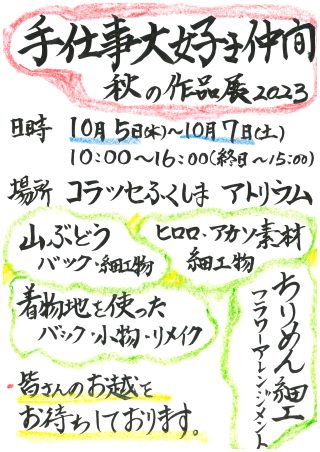 手仕事大好き仲間
秋の作品展2023
日時 10月5日(木)~10月7日(土)
10:00~16:00(終日~15:00)
場所 コラッセふくしま アトリウム
山ぶどう
バック・細工物
ヒロロ・アカソ素材
細工物
着物地を使った
バック・小物・リメイク
ちりめん細工
フラワーアレンジメント
皆さんのお越しを
お待ちしております。